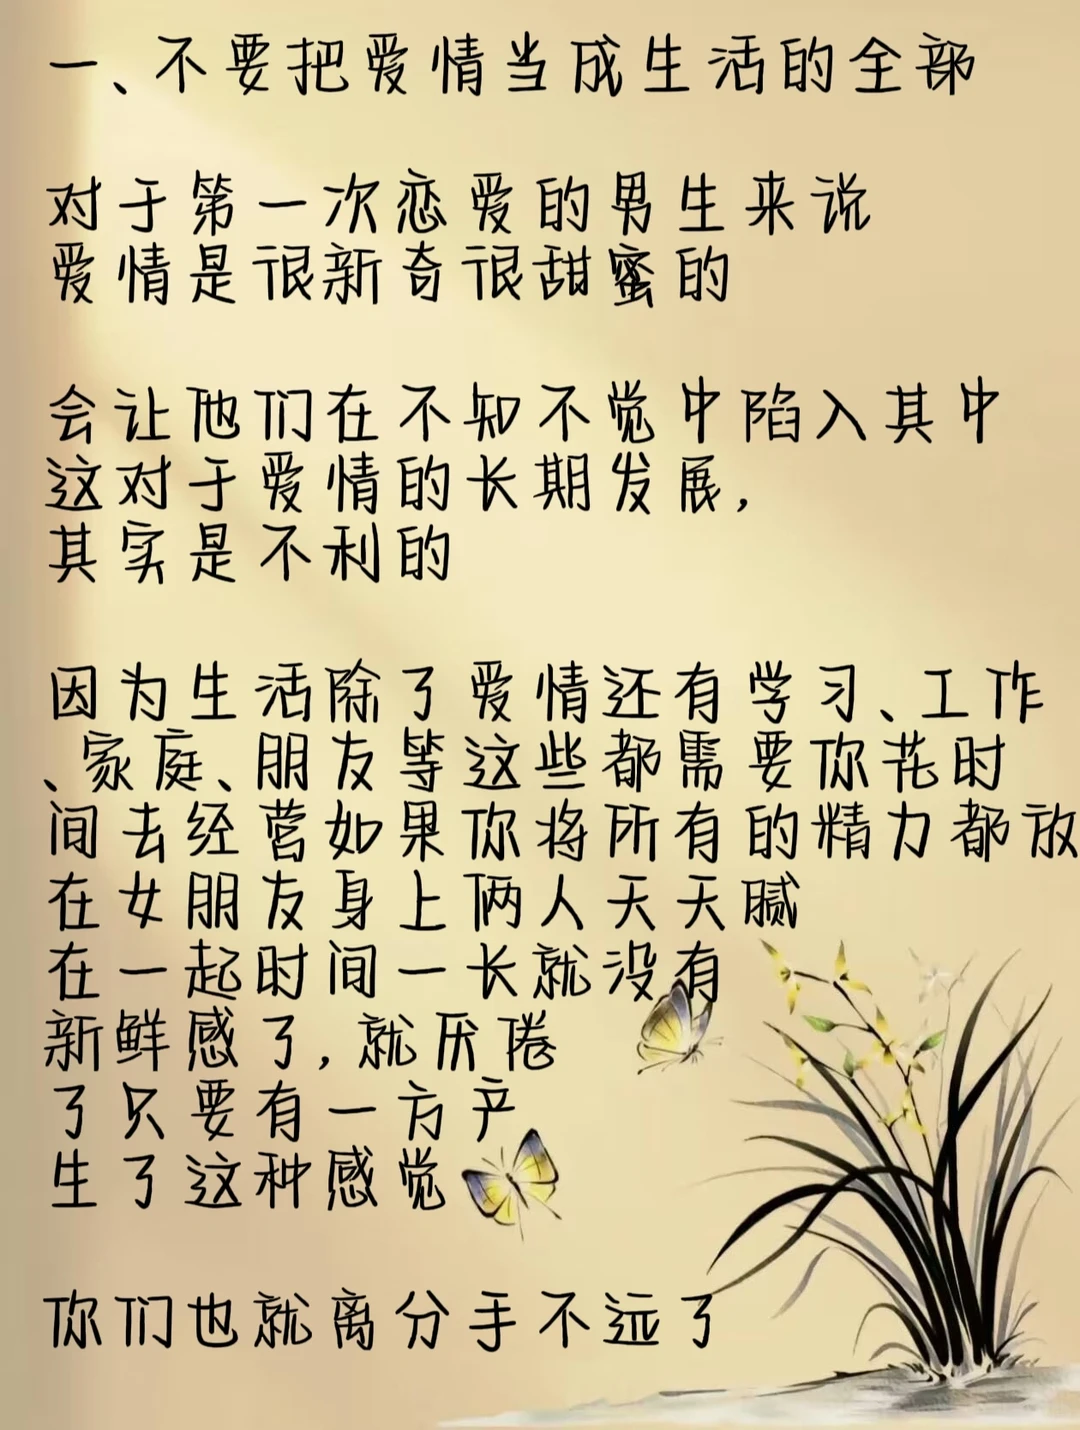 一、不要把爱情当成生活的全部
对于第一次恋爱的男生来说
爱情是很新奇很甜蜜的
会让他们在不知不觉中陷入其中
这对于爱情的长期发展,
其实是不利的
因为生活除了爱情还有学习、工作
、家庭、朋友等这些都需要你花时
间去经营如果你将所有的精力都放
在女朋友身上俩人天天腻
在一起时间一长就没有
新鲜感了,就厌倦
了只要有一方产
生了这种感觉
你们也就离分手不远了